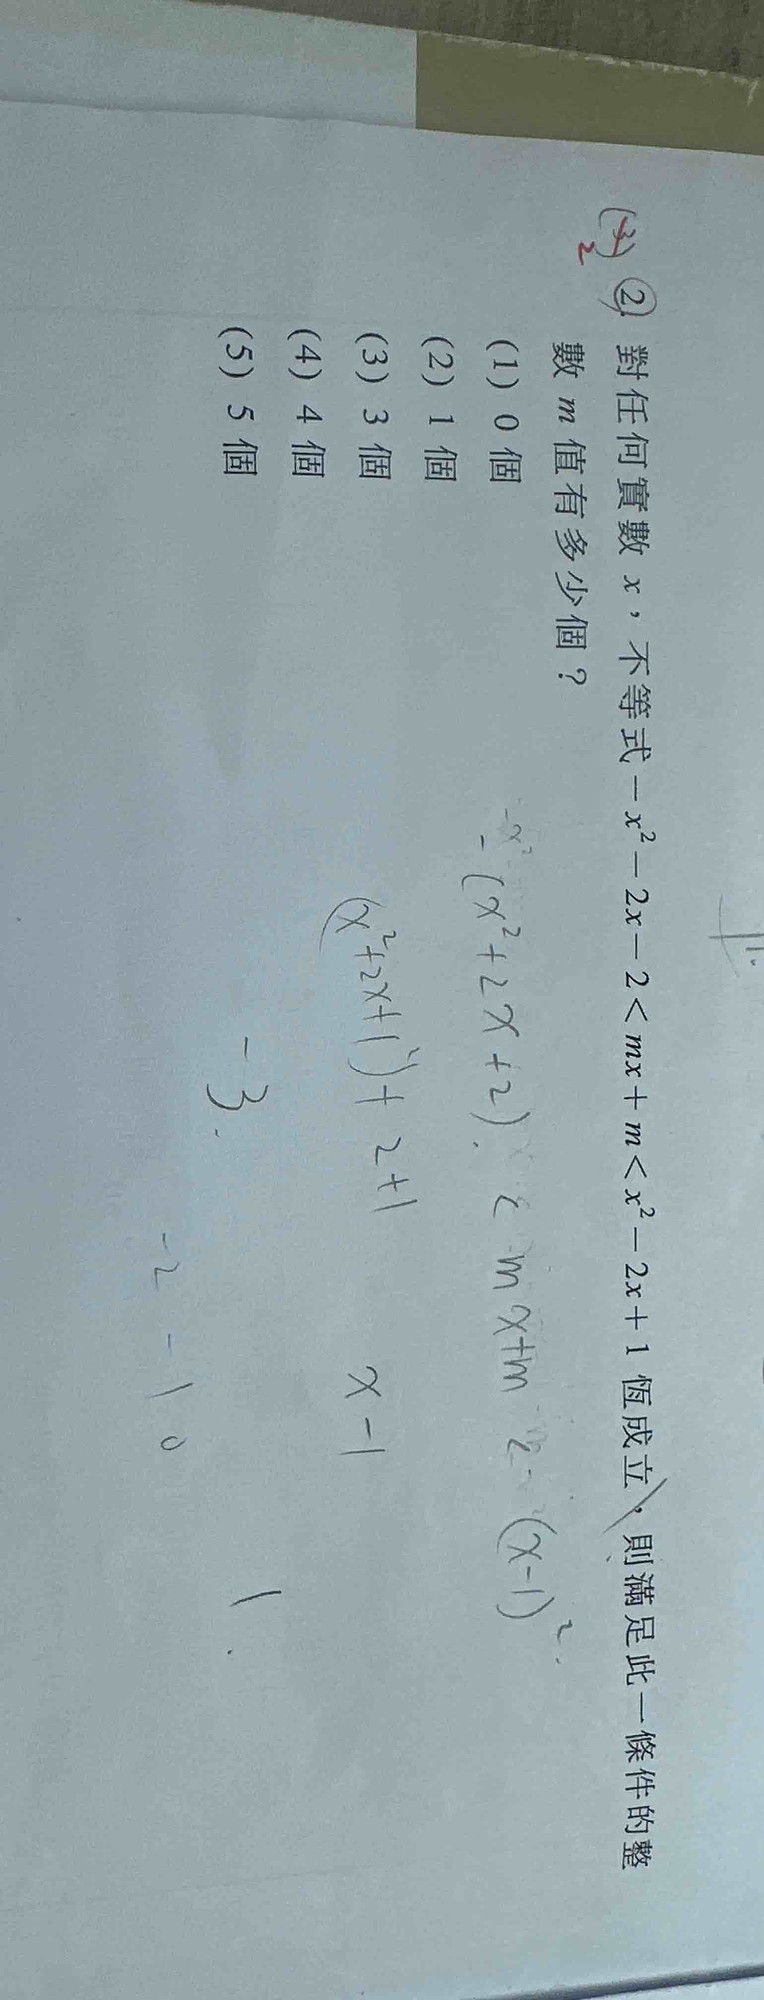 (3) 2 ② 對任何實數 x，不等式－x²－2x－2＜mx＋m＜x²－2x＋1 恆成立，則滿足此一條件的整
數 m 值有多少個？
(1) 0 個
(2) 1 個
(3) 3 個
(4) 4 個
(5) 5 個
-x²
-(x²+2x+2). < mx+m < (x-1)².
(x²+2x+1)+2+1 x-1
-3. 1.
-2 -1 0